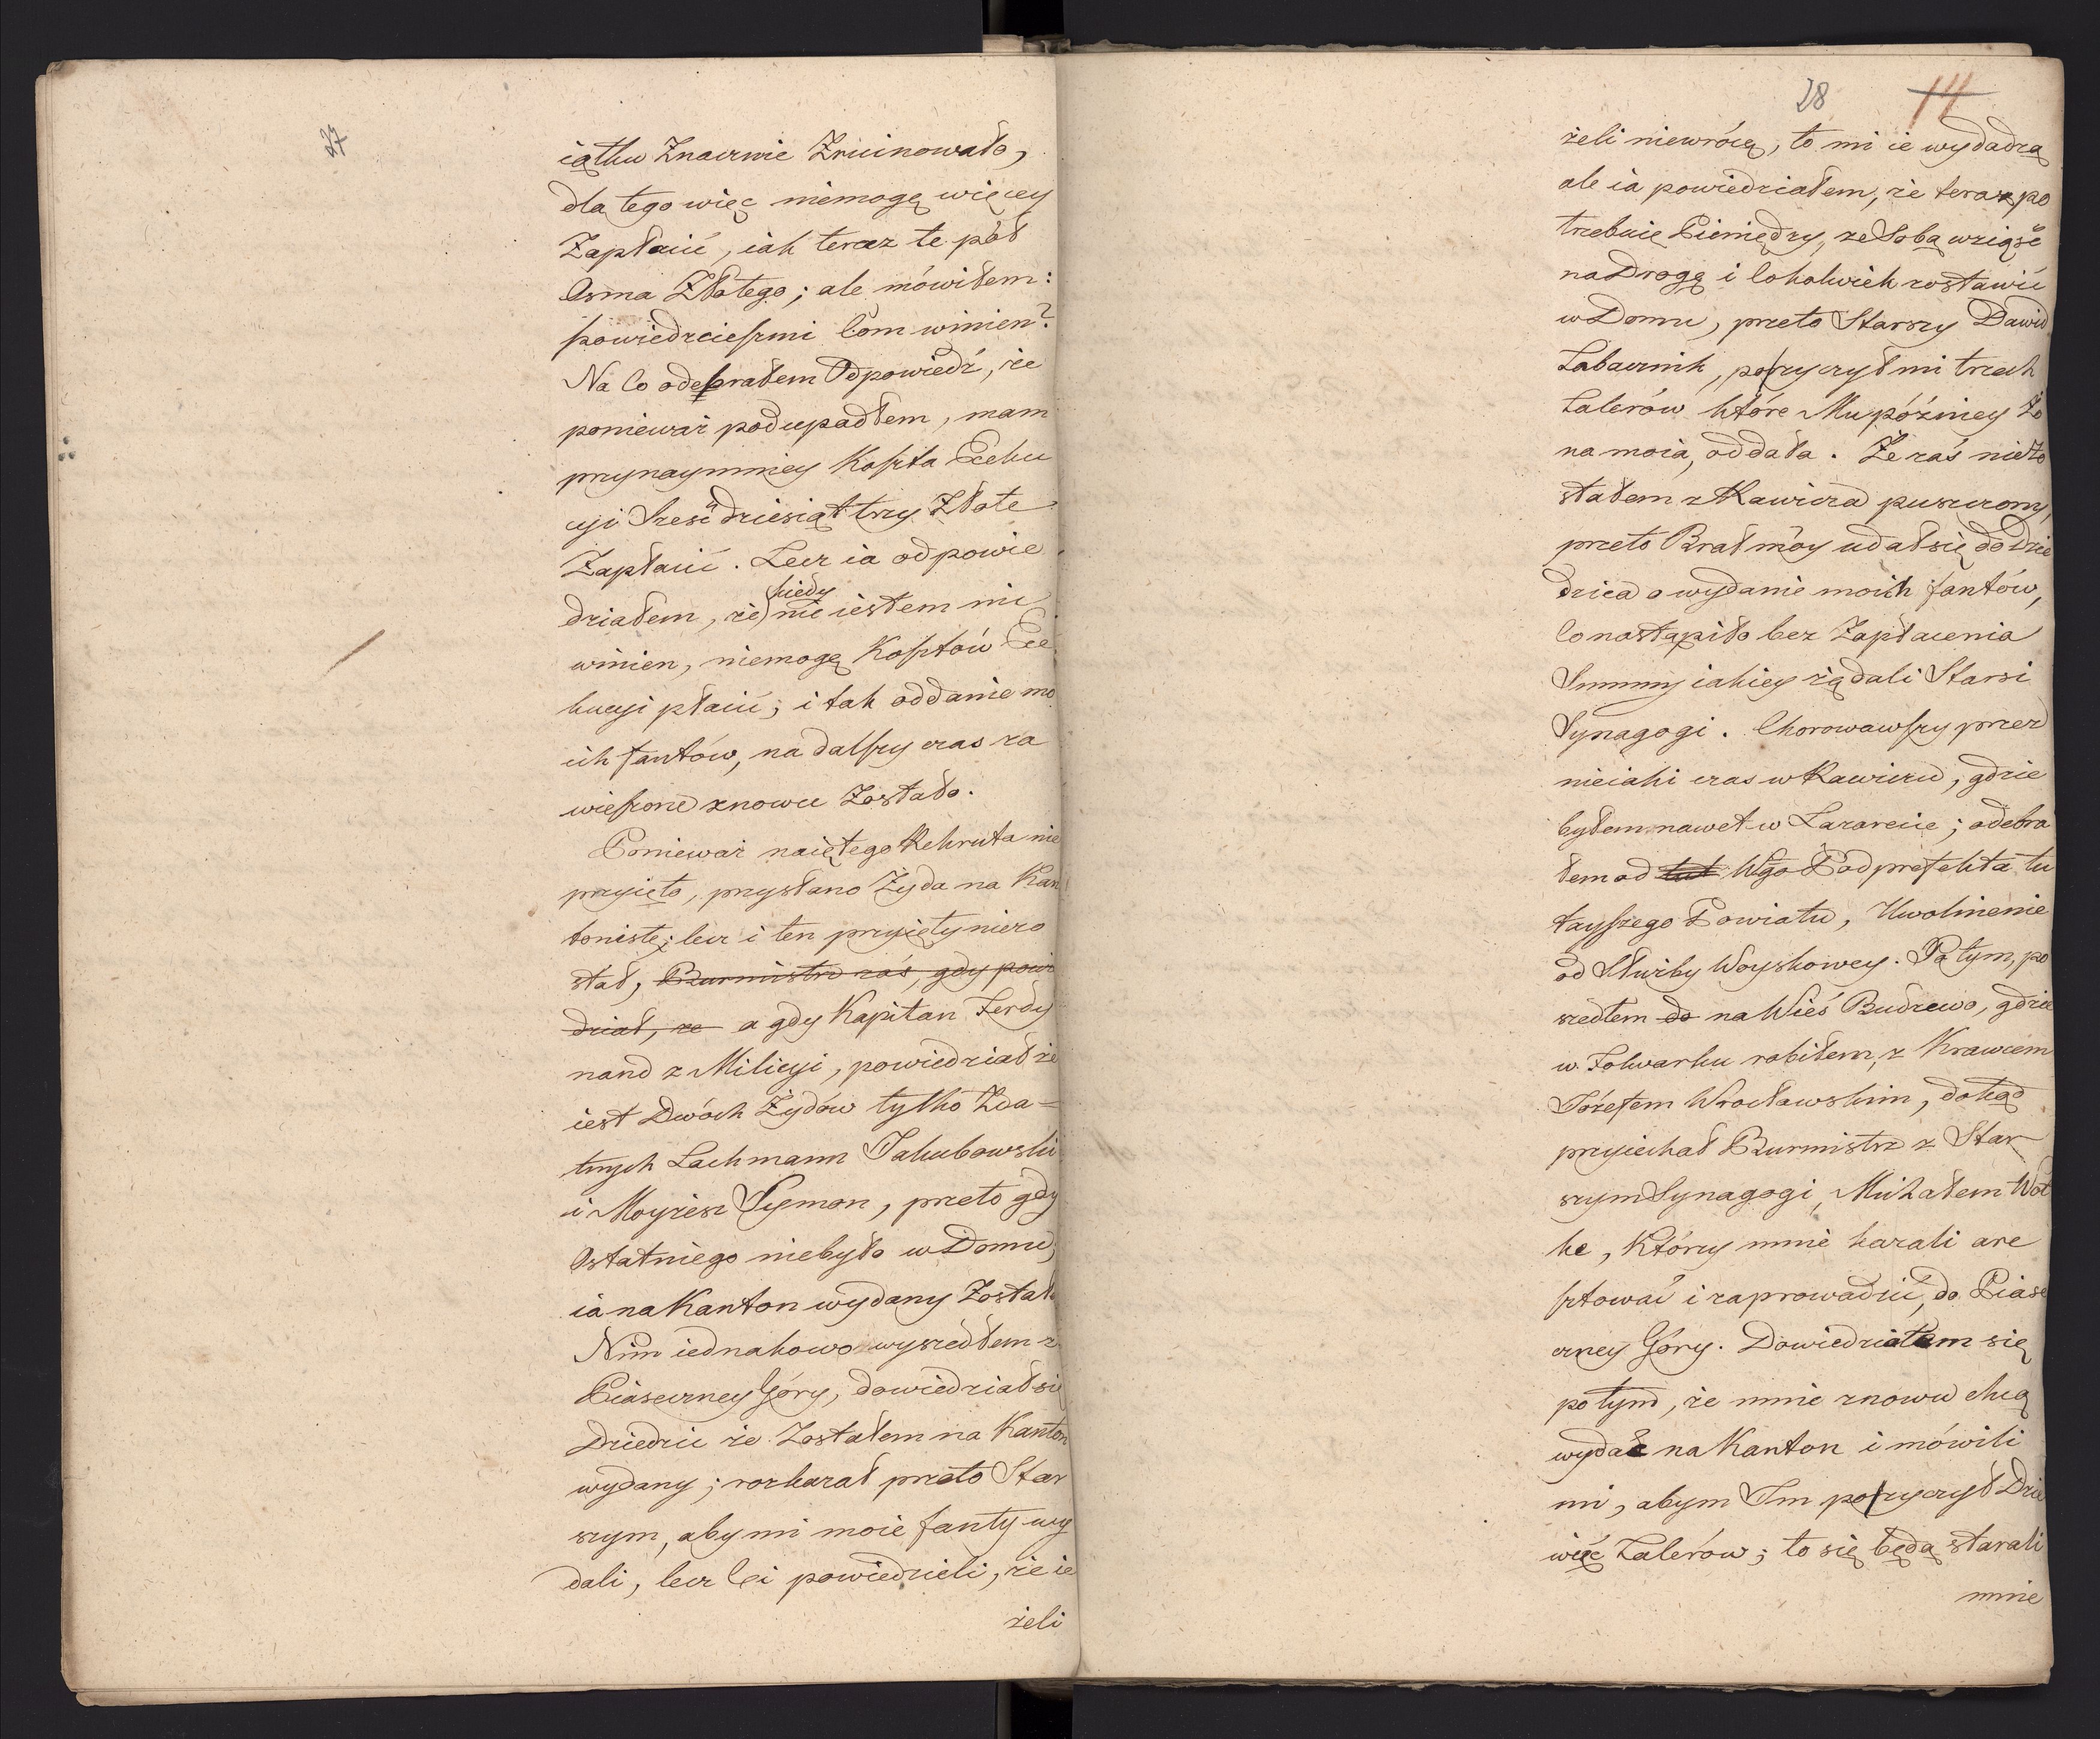 27
iątku Znacznie Zruinowało,
dla tego więc niemogę więcey
Zapłacić, iak teraz te pół
Osma Złotego; ale mówiłem:
powiedzcieſzmi Com winien?
Na Co odebrałem Odpowiedź, że
ponieważ podupadłem, mam
przynaymniey Koſzta Exeku
cyi Sześćdziesiąt trzy Złote
Zapłacić. Lecz ia odpowie
kiedy
działem, że nie iestem nic
winien, niemogę Koſztów Exe
kucyi płacić; i tak oddanie mo
ich fantów, na dalſzy czas za
wieſzone znowu Zostało.
Ponieważ naiętego Rekruta nie
przyięto, przysłano Żyda na Kan
tonistę; lecz i ten przyięty niezo
stał, Burmistrz zaś, gdy powie
dział, że a gdy Kapitan Ferdy
nand z Milicyi, powiedział że
iest Dwóch Żydów tylko Zda=
tnych Lachmann Jakubowski
i Moyżesz Szymon, przeto gdy
Ostatniego niebyło w Domu,
ia na Kanton wydany Został
Nim iednakowo wyszedłem z
Piaseczney Góry, dowiedział się
Dziedzic że Zostałem na Kanton
wydany; rozkazał przeto Star
szym, aby mi moie fanty wy
dali, lecz Ci powiedzieli, że ie
żeli
28 14
żeli niewrócę, to mi ie wydadzą
ale ia powiedziałem, że teraz po
trzebuię Pieniędzy, ze Sobą wziąść
na Drogę i Cokolwiek zostawić
w Domu, przeto Starszy Dawid
Tabacznik, pożyczył mi trzech
Talerów które Mu późniey Żo
na moia, oddała. Że zaś niezo
stałem z Rawicza puszczony,
przeto Brat móy udał się do Dzie
dzica o wydanie moich fantów,
Co nastąpiło bez Zapłacenia
Summy iakiey żądali Starsi
Synagogi. Chorowawſzy przez
nieiaki czas w Rawiczu, gdzie
byłem nawet w Lazarecie; odebra
łem od tut Wgo Podprefekta tu
tayſzego Powiatu, Uwolnienie
od Służby Woyskowey. Po tym, po
szedłem do na Wieś Budzewo, gdzie
w Folwarku robiłem, z Krawcem
Józefem Wrocławskim, dokąd
przyiechał Burmistrz z Star
szym Synagogi, Michałem Wol
ke, Którzy mnie kazali are
ſztować i zaprowadzić, do Piase
czney Góry. Dowiedziałem się
potym, że mnie znowu chcą
wydać na Kanton i mówili
mi, abym Im pożyczył Dzie
więć Talerów; to się będą starali
mnie